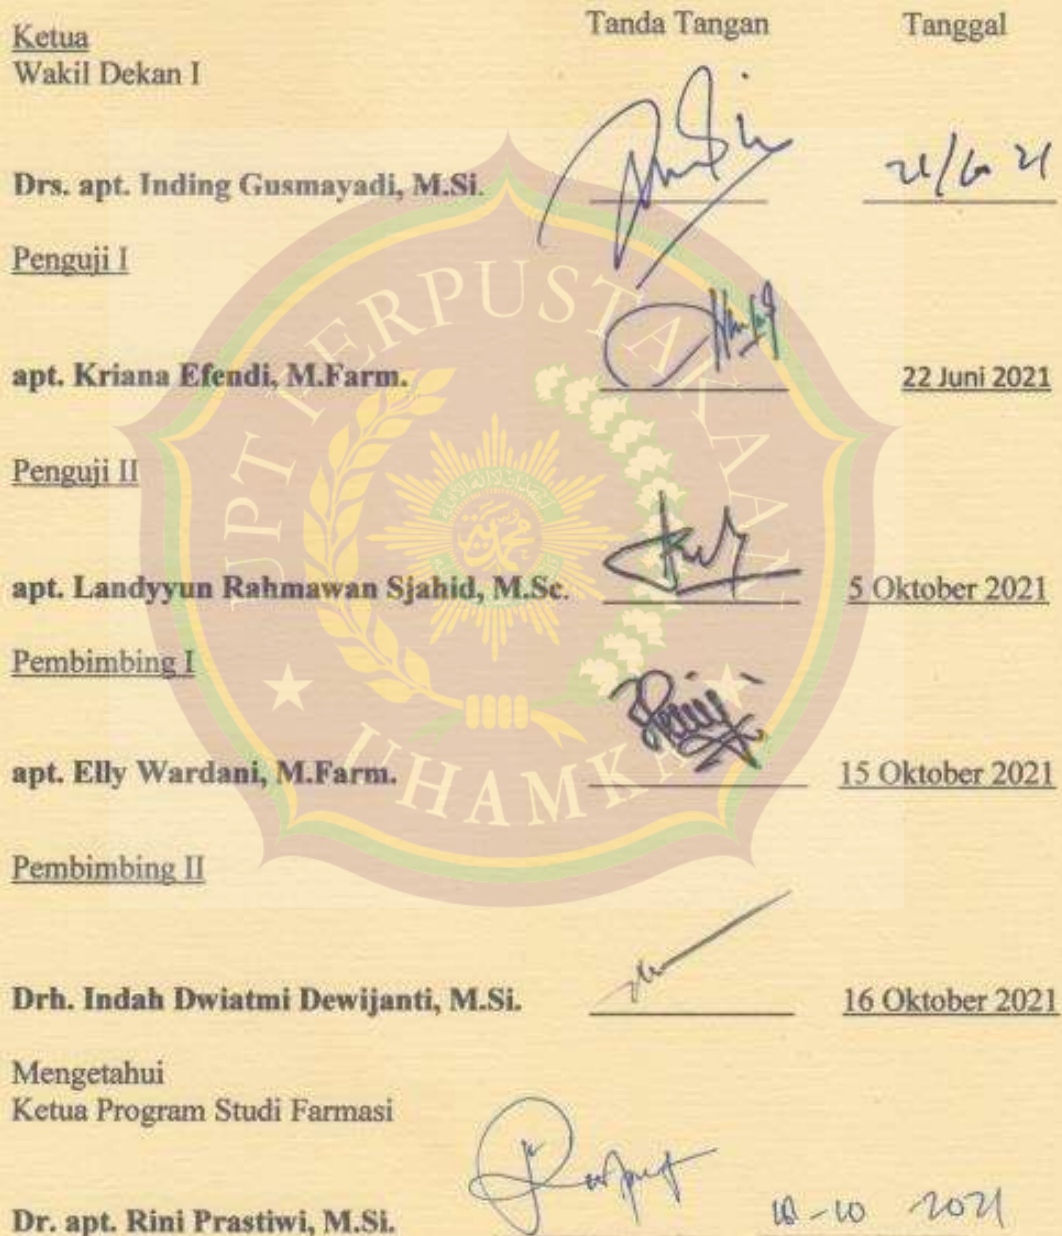 Tanda Tangan Tanggal
Ketua
Wakil Dekan I
Drs. apt. Inding Gusmayadi, M.Si.
Penguji I
apt. Kriana Efendi, M.Farm. 22 Juni 2021
Penguji II
apt. Landyyun Rahmawan Sjahid, M.Sc. 5 Oktober 2021
Pembimbing I
apt. Elly Wardani, M.Farm. 15 Oktober 2021
Pembimbing II
Drh. Indah Dwiatmi Dewijanti, M.Si. 16 Oktober 2021
Mengetahui
Ketua Program Studi Farmasi
Dr. apt. Rini Prastiwi, M.Si. 2021
UPT PERPUSTAKAAN
UHAMKA